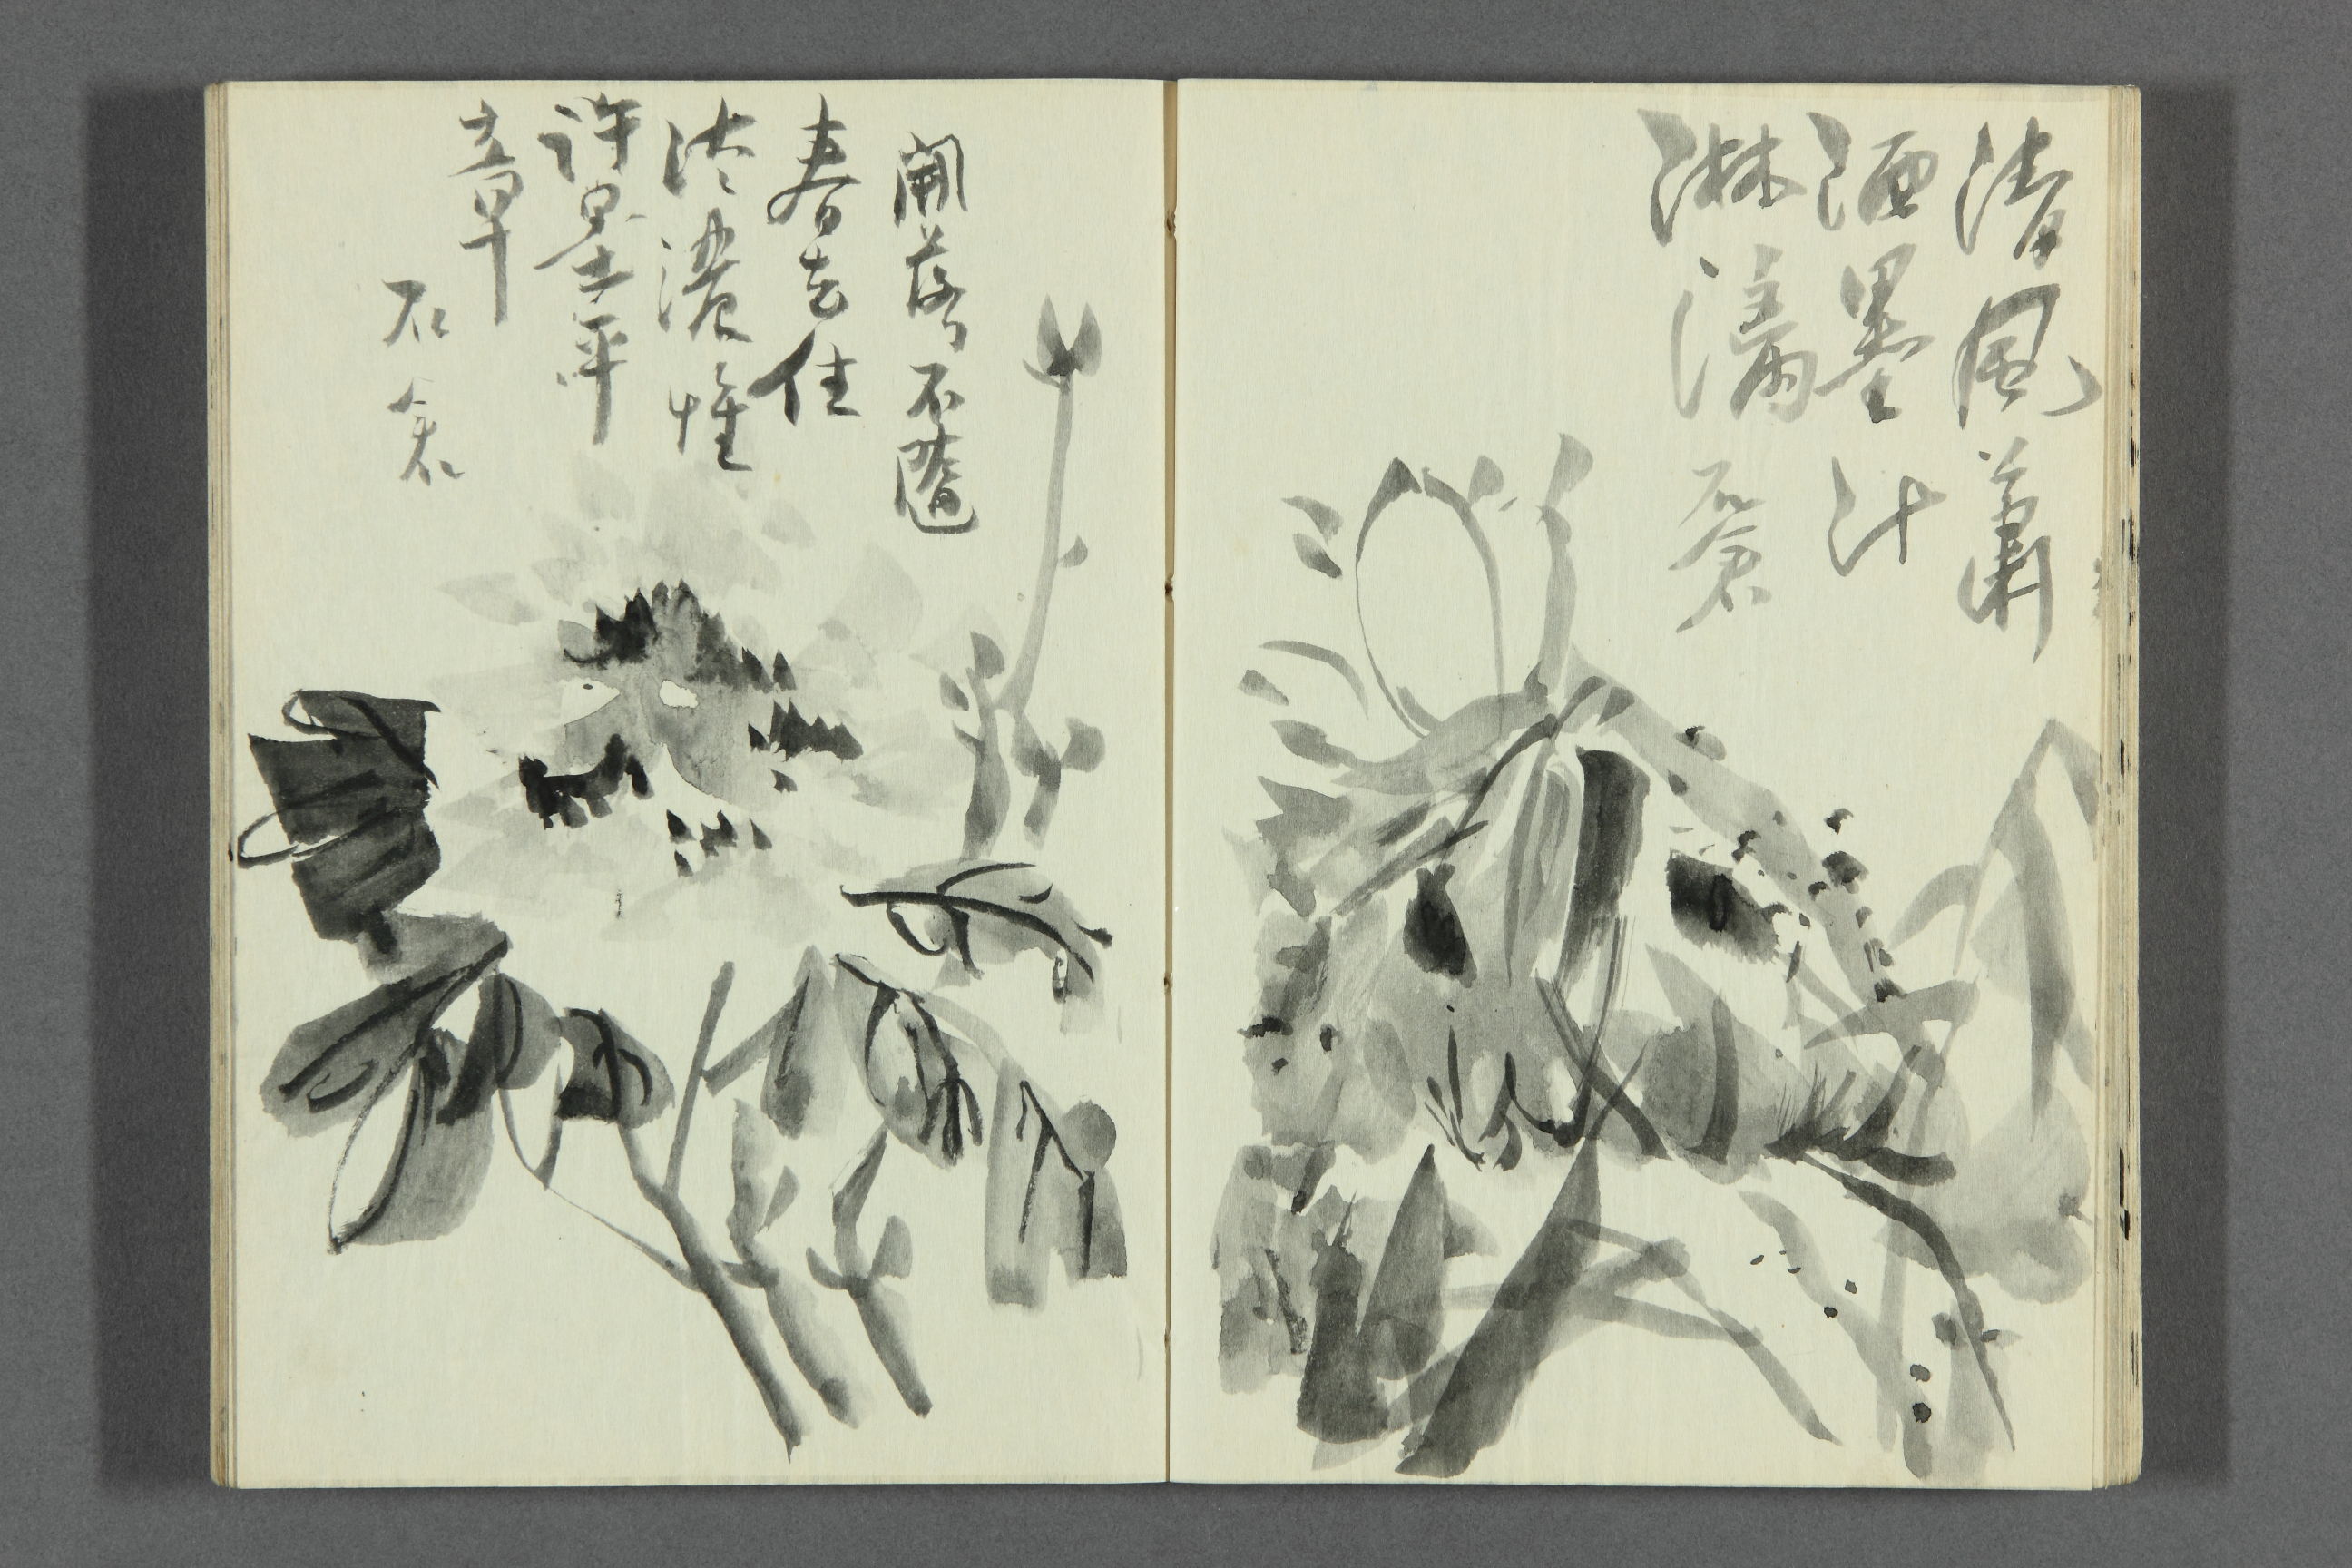 清風蕭
洒墨汁
淋漓 石
開落不隨
春去住
淡濃惟
許墨平
章
石